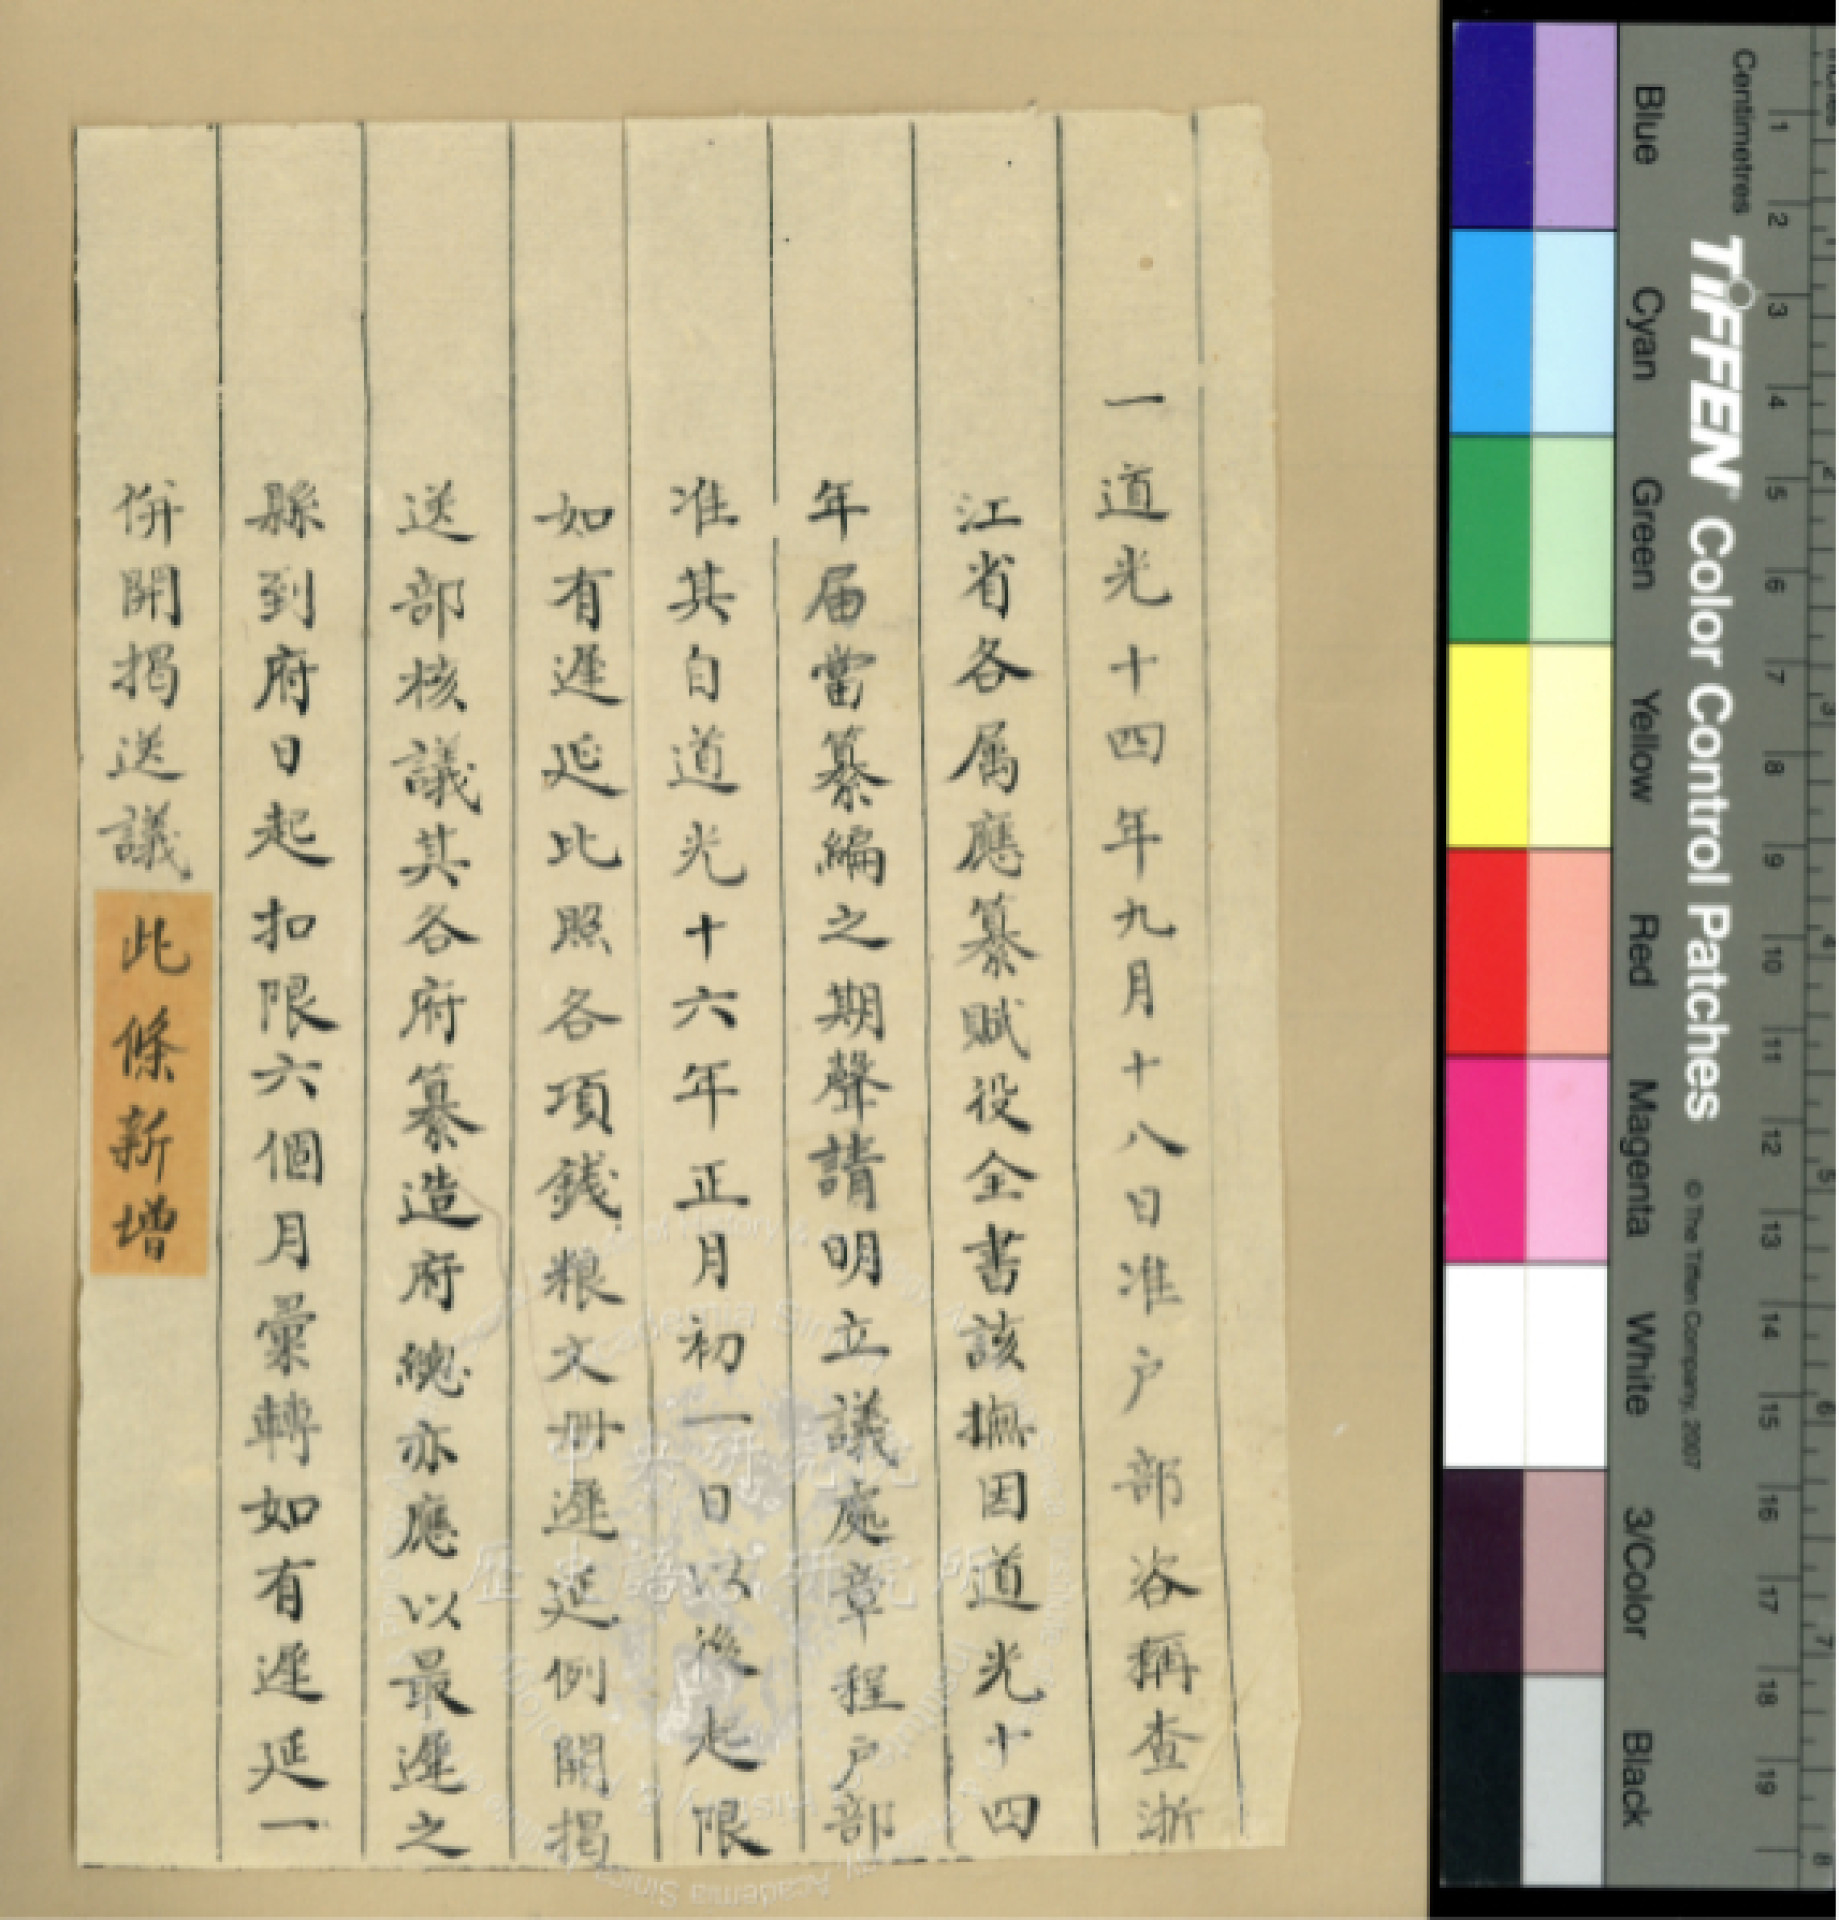 一道光十四年九月十八日准户部咨稱查浙
江省各属應纂賦役全書該撫因道光十四
年届當纂編之期聲請明立議處章程户部
准其自道光十六年正月初一日以後起限
如有遲延比照各項錢粮文册遲延例開揭
送部核議其各府纂造府總亦應以最遲之
縣到府日起扣限六個月彙轉如有遲延一
併開揭送議
此條新增
中央研究院
歷史語言研究所
Centimetres
1 2 3 4 5 6 7 8 9 10 11 12 13 14 15 16 17 18 19
TIFFEN Color Control Patches © The Tiffen Company, 2007
Blue Cyan Green Yellow Red Magenta White 3/Color Black